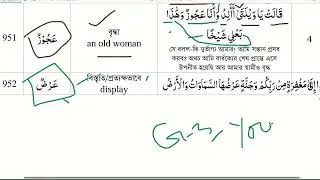 951
عَجُوْزٌ
বৃদ্ধা
an old woman
قَالَتْ يَا وَيْلَتَىٰ أَأَلِدُ وَأَنَا عَجُوزٌ وَهَٰذَا
بَعْلِي شَيْخًا
সে বলল-কি দুর্ভাগ্য আমার! আমি সন্তান প্রসব
করব? অথচ আমি বার্ধক্যের শেষ প্রান্তে এসে
উপনীত হয়েছি আর আমার স্বামীও বৃদ্ধ
4
952
عَرْضٌ
বিস্তৃতি/প্রত্যক্ষভাবে।
display
مَغْفِرَةٍ مِن رَّبِّكُمْ وَجَنَّةٍ عَرْضُهَا السَّمَاوَاتُ وَالْأَرْضُ